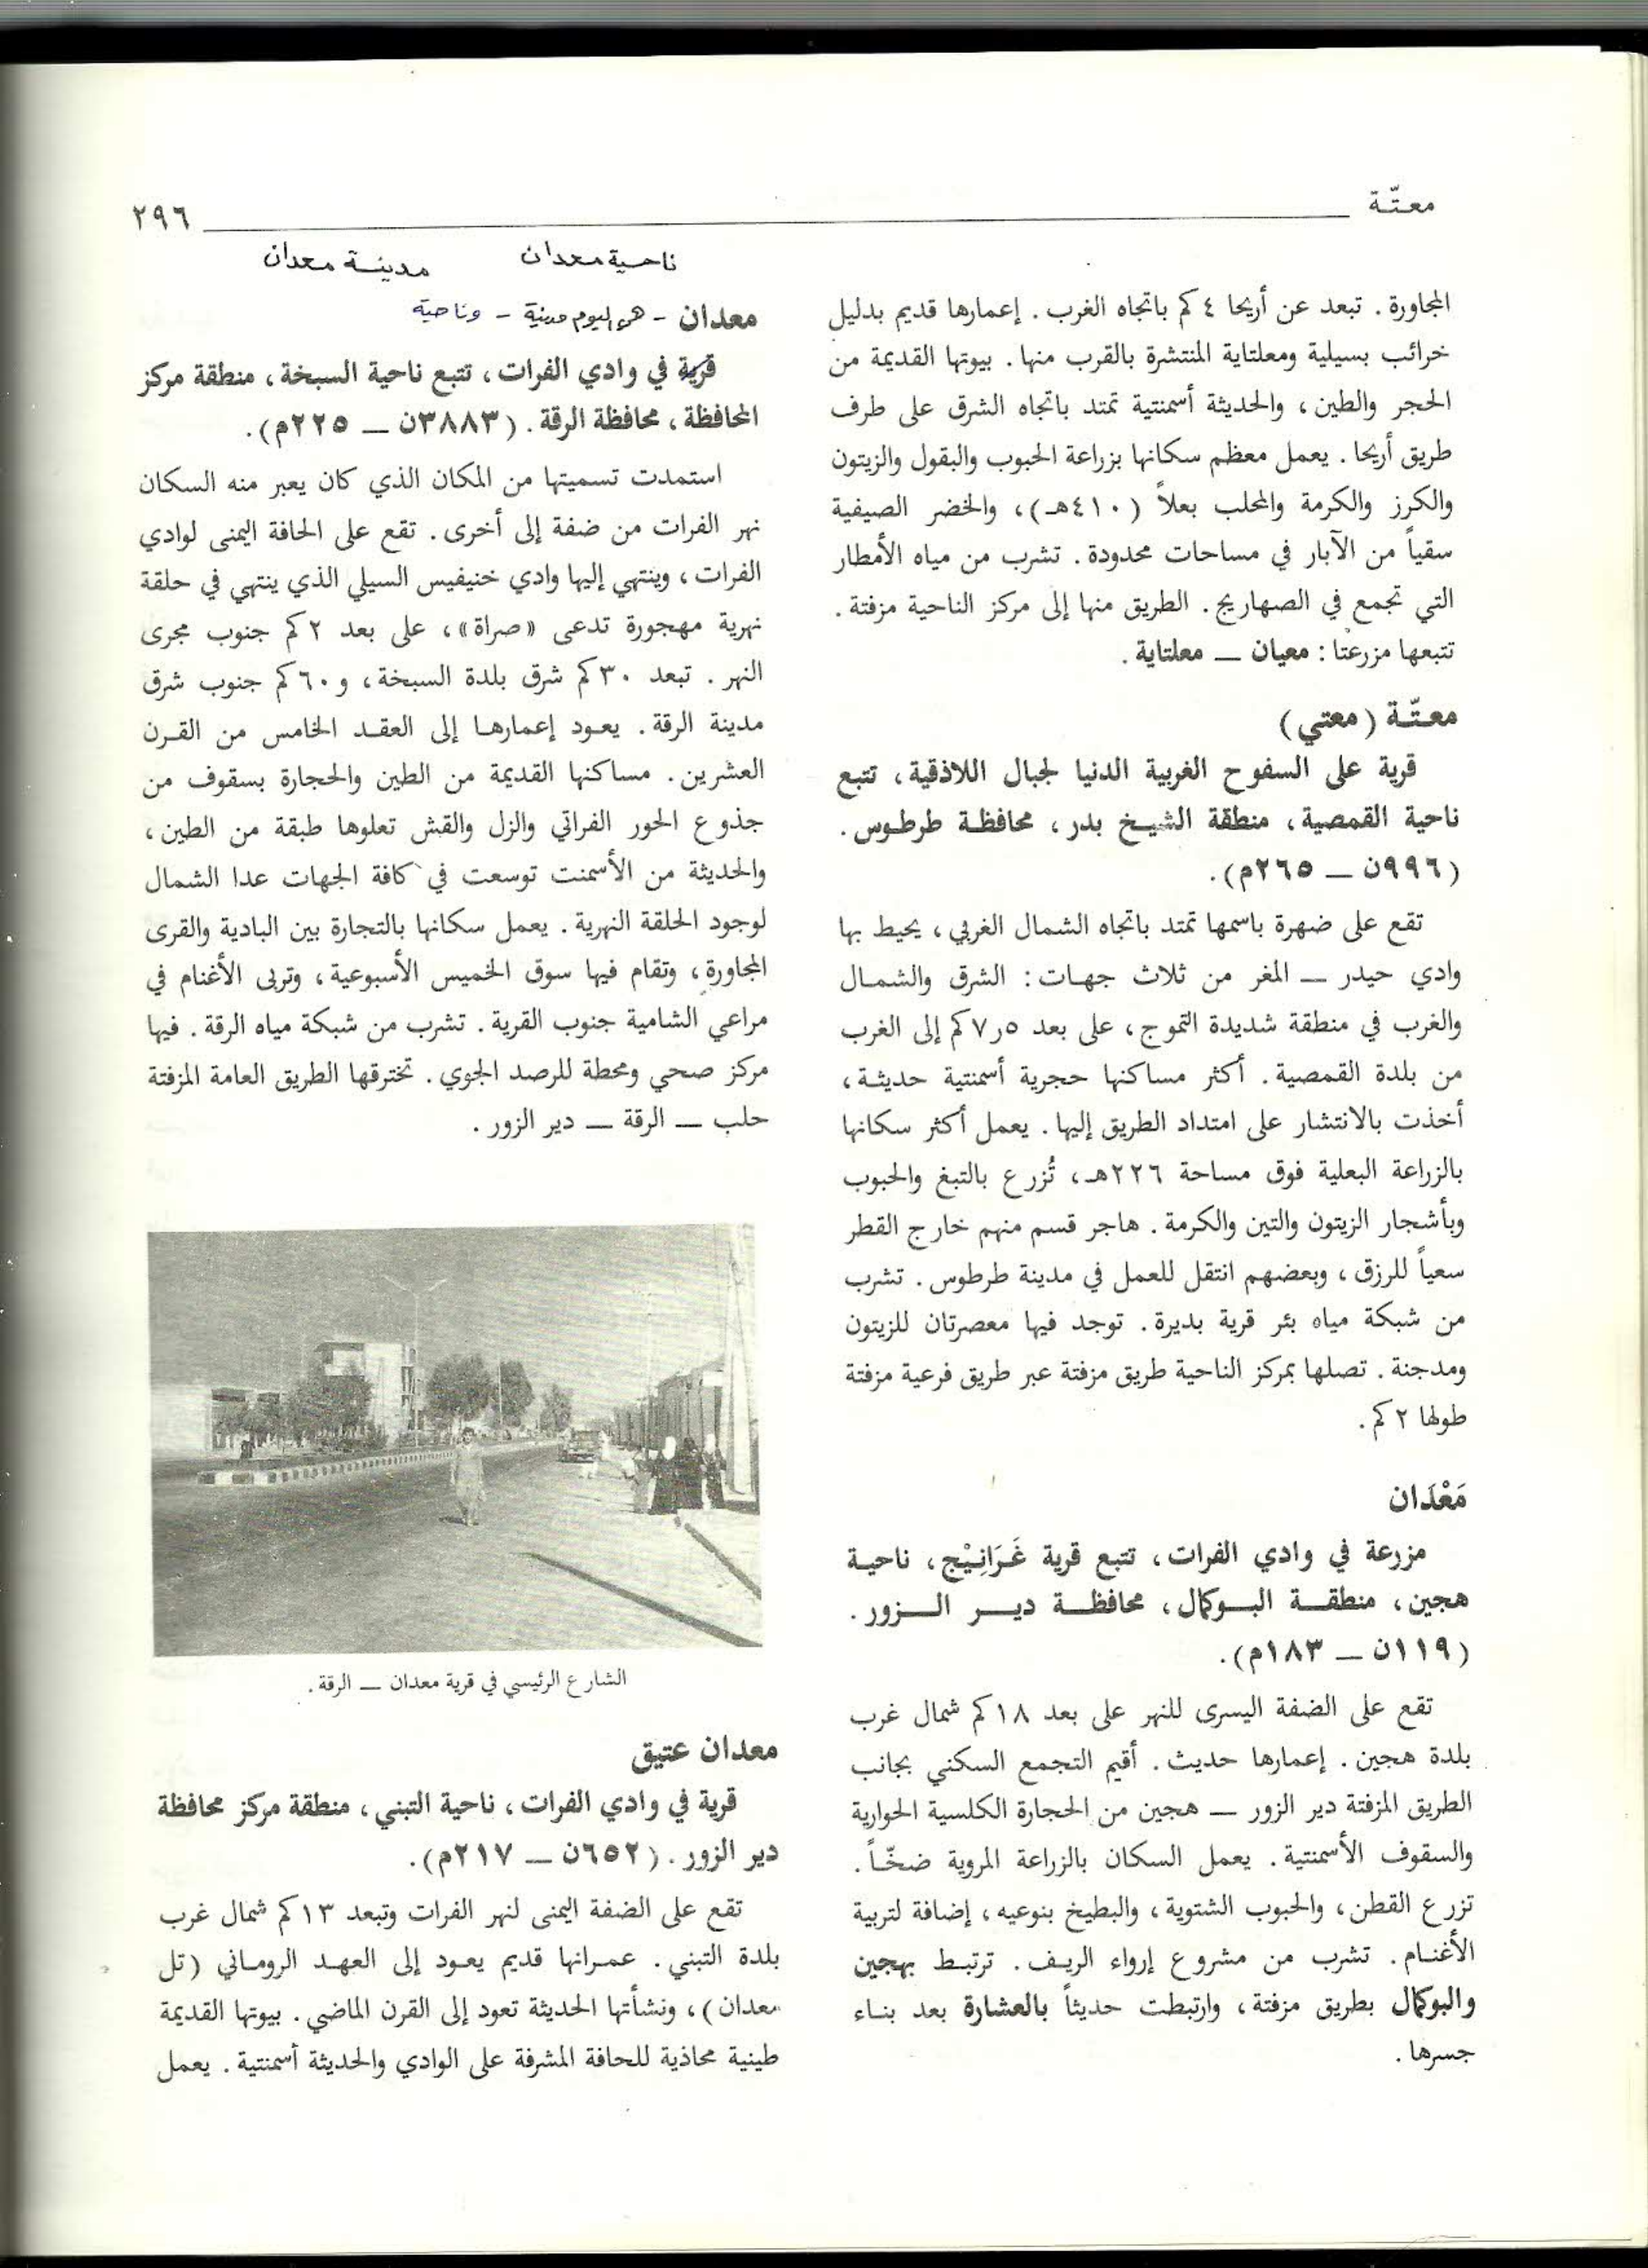 معتّة
٢٩٦
المجاورة. تبعد عن أريحا ٤ كم باتجاه الغرب. إعمارها قديم بدليل
خرائب بسيلية ومعلتاية المنتشرة بالقرب منها. بيوتها القديمة من
الحجر والطين، والحديثة أسمنتية تمتد باتجاه الشرق على طرف
طريق أريحا. يعمل معظم سكانها بزراعة الحبوب والبقول والزيتون
والكرز والكرمة والمحلب بعلاً (٤١٠هـ)، والخضر الصيفية
سقياً من الآبار في مساحات محدودة. تشرب من مياه الأمطار
التي تجمع في الصهاريج. الطريق منها إلى مركز الناحية مزفتة.
تتبعها مزرعتا: معيان — معلتاية.
معتّة (معتي)
قرية على السفوح الغربية الدنيا لجبال اللاذقية، تتبع
ناحية القمصية، منطقة الشيخ بدر، محافظة طرطوس.
(٩٩٦ن — ٢٦٥م).
تقع على ضهرة باسمها تمتد باتجاه الشمال الغربي، يحيط بها
وادي حيدر — المغر من ثلاث جهات: الشرق والشمال
والغرب في منطقة شديدة التموج، على بعد ٥ر٧ كم إلى الغرب
من بلدة القمصية. أكثر مساكنها حجرية أسمنتية حديثة،
أخذت بالانتشار على امتداد الطريق إليها. يعمل أكثر سكانها
بالزراعة البعلية فوق مساحة ٢٢٦هـ، تُزرع بالتبغ والحبوب
وبأشجار الزيتون والتين والكرمة. هاجر قسم منهم خارج القطر
سعياً للرزق، وبعضهم انتقل للعمل في مدينة طرطوس. تشرب
من شبكة مياه بئر قرية بديرة. توجد فيها معصرتان للزيتون
ومدجنة. تصلها بمركز الناحية طريق مزفتة عبر طريق فرعية مزفتة
طولها ٢ كم.
مَعْدَان
مزرعة في وادي الفرات، تتبع قرية غَرَانِيْج، ناحية
هجين، منطقة البوكمال، محافظة دير الزور.
(١١٩ن — ١٨٣م).
تقع على الضفة اليسرى للنهر على بعد ١٨ كم شمال غرب
بلدة هجين. إعمارها حديث. أقيم التجمع السكني بجانب
الطريق المزفتة دير الزور — هجين من الحجارة الكلسية الحوارية
والسقوف الأسمنتية. يعمل السكان بالزراعة المروية ضخّاً.
تزرع القطن، والحبوب الشتوية، والبطيخ بنوعيه، إضافة لتربية
الأغنام. تشرب من مشروع إرواء الريف. ترتبط بهجين
والبوكمال بطريق مزفتة، وارتبطت حديثاً بالعشارة بعد بناء
جسرها.
ناحية معدان مدينة معدان
معدان - هي اليوم مدينة - وناحية
قرية في وادي الفرات، تتبع ناحية السبخة، منطقة مركز
المحافظة، محافظة الرقة. (٣٨٨٣ن — ٢٢٥م).
استمدت تسميتها من المكان الذي كان يعبر منه السكان
نهر الفرات من ضفة إلى أخرى. تقع على الحافة اليمنى لوادي
الفرات، وينتهي إليها وادي خنيفيس السيلي الذي ينتهي في حلقة
نهرية مهجورة تدعى «صراة»، على بعد ٢ كم جنوب مجرى
النهر. تبعد ٣٠ كم شرق بلدة السبخة، و٦٠ كم جنوب شرق
مدينة الرقة. يعود إعمارها إلى العقد الخامس من القرن
العشرين. مساكنها القديمة من الطين والحجارة بسقوف من
جذوع الحور الفراتي والزل والقش تعلوها طبقة من الطين،
والحديثة من الأسمنت توسعت في كافة الجهات عدا الشمال
لوجود الحلقة النهرية. يعمل سكانها بالتجارة بين البادية والقرى
المجاورة، وتقام فيها سوق الخميس الأسبوعية، وتربى الأغنام في
مراعي الشامية جنوب القرية. تشرب من شبكة مياه الرقة. فيها
مركز صحي ومحطة للرصد الجوي. تخترقها الطريق العامة المزفتة
حلب — الرقة — دير الزور.
الشارع الرئيسي في قرية معدان — الرقة.
معدان عتيق
قرية في وادي الفرات، ناحية التبني، منطقة مركز محافظة
دير الزور. (٦٥٢ن — ٢١٧م).
تقع على الضفة اليمنى لنهر الفرات وتبعد ١٣ كم شمال غرب
بلدة التبني. عمرانها قديم يعود إلى العهد الروماني (تل
معدان)، ونشأتها الحديثة تعود إلى القرن الماضي. بيوتها القديمة
طينية محاذية للحافة المشرفة على الوادي والحديثة أسمنتية. يعمل